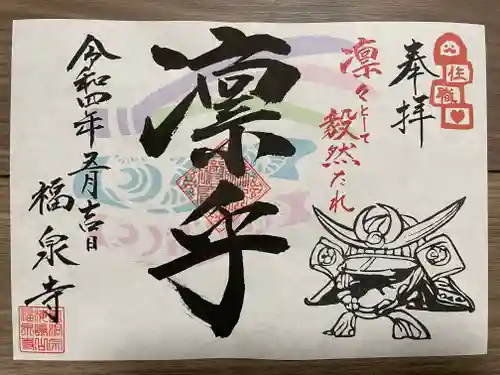 奉拝
住職
凛々として
毅然たれ
凛乎
令和四年五月吉日
福泉寺